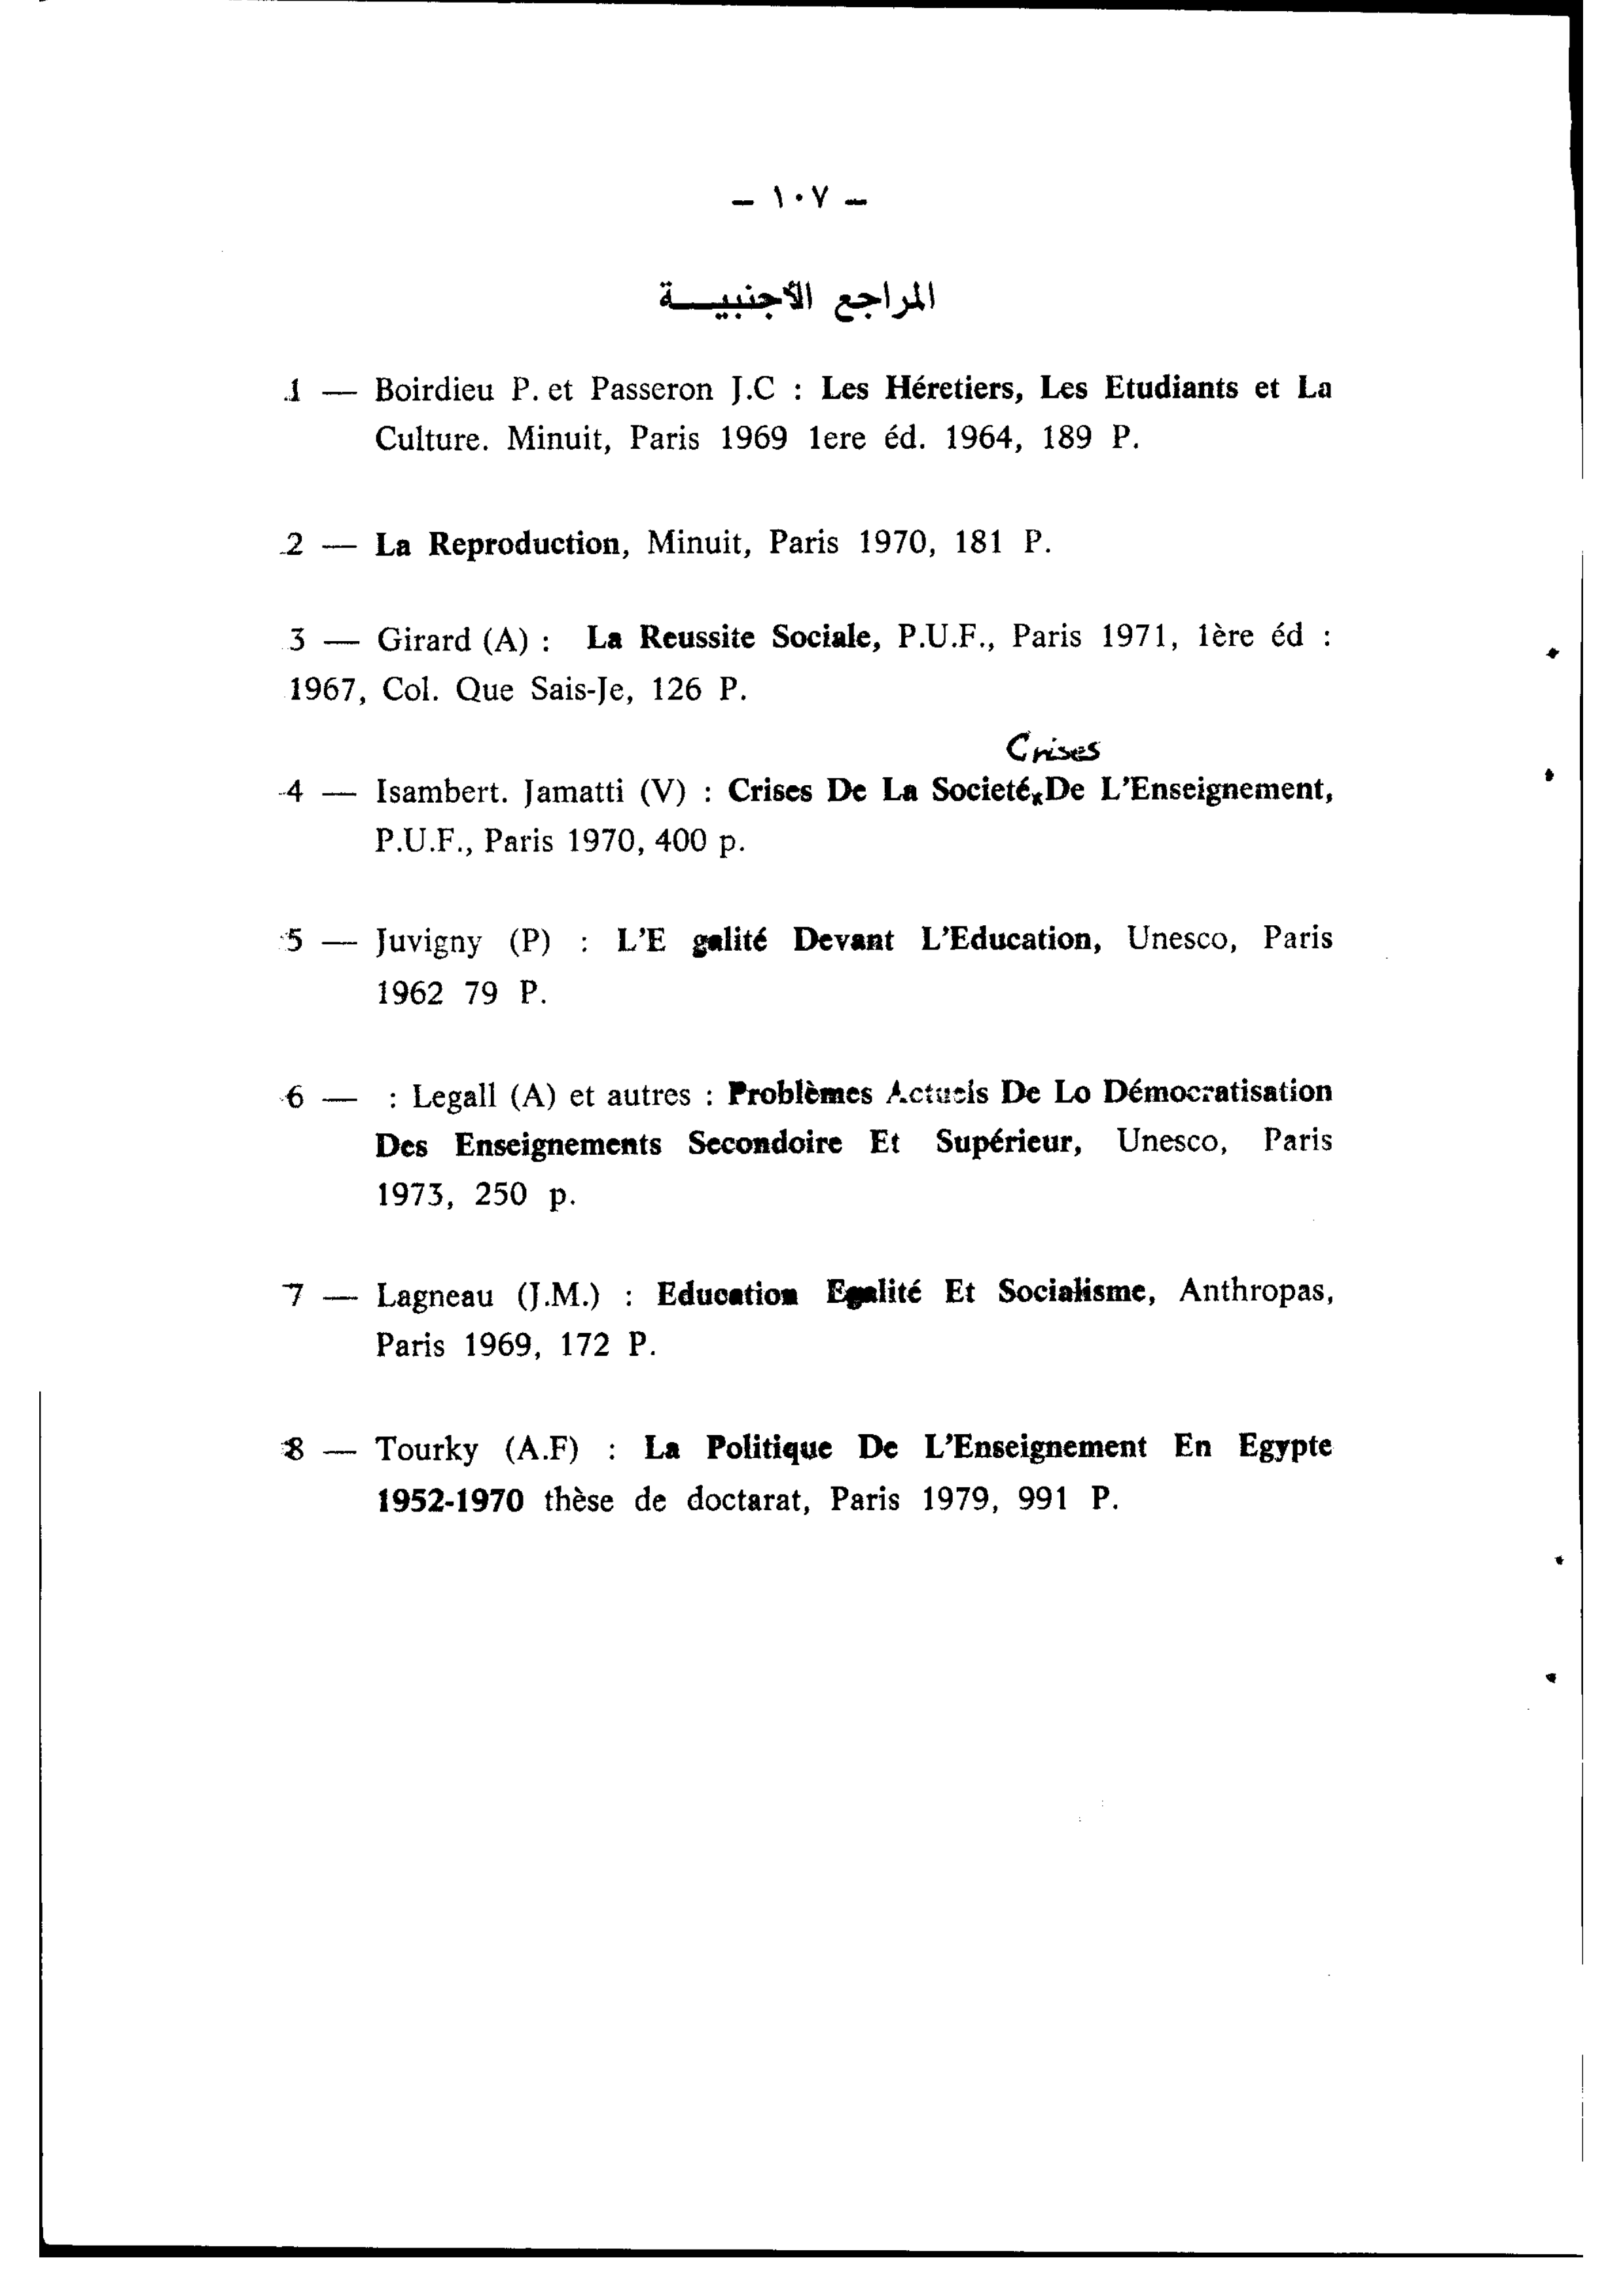 – ١٠٧ –
المراجع الأجنبيـــة
1 — Boirdieu P. et Passeron J.C : Les Héretiers, Les Etudiants et La
Culture. Minuit, Paris 1969 1ere éd. 1964, 189 P.
2 — La Reproduction, Minuit, Paris 1970, 181 P.
3 — Girard (A) : La Reussite Sociale, P.U.F., Paris 1971, 1ère éd :
1967, Col. Que Sais-Je, 126 P.
Crises
4 — Isambert. Jamatti (V) : Crises De La Societé,x De L'Enseignement,
P.U.F., Paris 1970, 400 p.
5 — Juvigny (P) : L'E galité Devant L'Education, Unesco, Paris
1962 79 P.
6 — : Legall (A) et autres : Problèmes Actuels De Lo Démocratisation
Des Enseignements Secondoire Et Supérieur, Unesco, Paris
1973, 250 p.
7 — Lagneau (J.M.) : Education Egalité Et Socialisme, Anthropas,
Paris 1969, 172 P.
8 — Tourky (A.F) : La Politique De L'Enseignement En Egypte
1952-1970 thèse de doctarat, Paris 1979, 991 P.